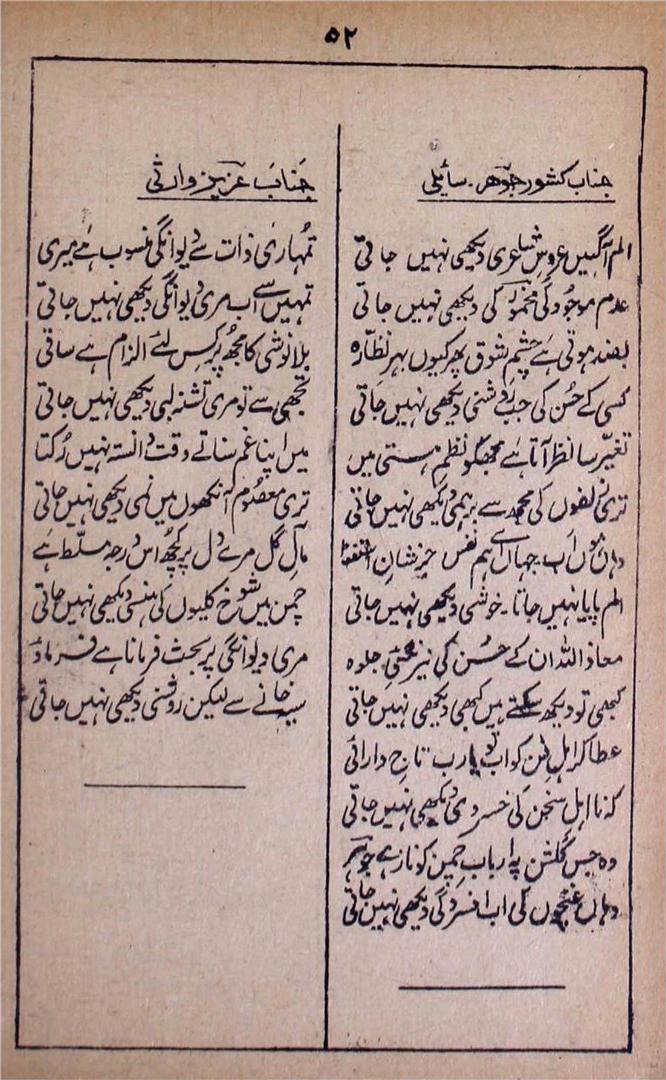 ۵۲
جناب کشور جوہر ۔ سائلی
الم آگیں عروسِ شاعری دیکھی نہیں جاتی
عدم موجودگی مخمور کی دیکھی نہیں جاتی
بضد ہوتی ہے چشمِ شوق پھر کیوں بہرِ نظارہ
کسی کے حسن کی جب روشنی دیکھی نہیں جاتی
تغیّر سا نظر آتا ہے مجھکو نظمِ ہستی میں
تری زلفوں کی مجھ سے برہمی دیکھی نہیں جاتی
وہاں ہوں اب جہاں اے ہم نفس جز شانِ
الم پایا نہیں جاتا ۔ خوشی دیکھی نہیں جاتی
معاذ اللہ ان کے حسن کی نیرنگیِ جلوہ
کبھی تو دیکھ سکتے ہیں کبھی دیکھی نہیں جاتی
عطا کر اہلِ فن کو اب تو یارب تاجِ دارائی
کہ نا اہلِ سخن کی خسروی دیکھی نہیں جاتی
وہ جس گلشن پہ اربابِ چمن کو ناز ہے جوہر
وہاں غنچوں کی اب افسردگی دیکھی نہیں جاتی
جناب عزیز وارثی
تمہاری ذات سے دیوانگی منسوب ہے میری
تمہیں سے اب مری دیوانگی دیکھی نہیں جاتی
بلا نوشی کا مجھ پر کس لئے الزام ہے ساقی
تجھی سے تو مری تشنہ لبی دیکھی نہیں جاتی
میں اپنا غم سناتے وقت دانستہ نہیں رُکتا
تری معصوم آنکھوں میں نمی دیکھی نہیں جاتی
مآلِ گل مرے دل پر کچھ اس درجہ مسلّط ہے
چمن میں شوخ کلیوں کی ہنسی دیکھی نہیں جاتی
مری دیوانگی پر بحث فرمانا ہے
سیہ خانے سے لیکن روشنی دیکھی نہیں جاتی